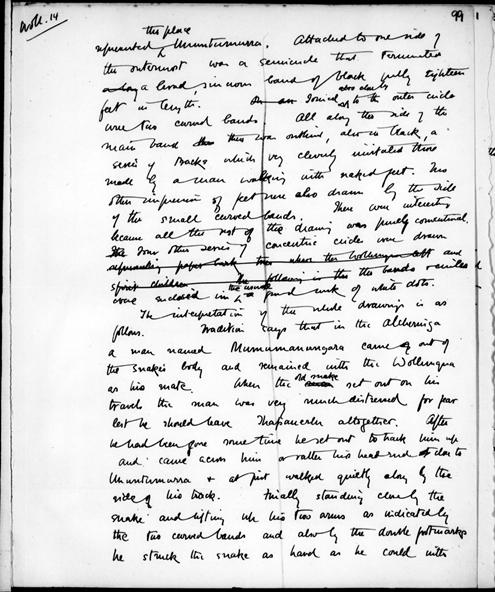 Woll. 14
99
this place
represented Ununtumurra. Attached to one side of
the outermost was a semicircle that terminated
a broad sinuous band of black fully eighteen
feet in length. Joined also close to the outer circle
were two curved bands. All along the side of the
main band there was outlined, also in black, a
series of tracks which very cleverly imitated those
made by a man walking with naked feet. Two
other impressions of feet were also drawn by the side
of the small curved bands. These were interesting
because all the rest of the drawing was purely conventional.
The four other series of concentric circles were drawn
representing paper bark trees where the Wollunqua left and
spirit children The following in this the bands and
were enclosed in the usual ground work of white dots.
The interpretation of the whole drawings is as
follows. Tradition says that in the Alcheringa
a man named Mumumanungara came out of
the snake's body and remained with the Wollunqua
as his mate. When the old snake set out on his
travels the man was very much distressed for fear
lest he should leave Thapauerlu altogether. After
he had been gone some time he set out to track him up
and came across him or rather his head end close to
Ununtumurra & at first walked quietly along by the
side of his track. Finally standing close by the
snake and lifting up his two arms as indicated by
the two curved bands and also by the double footmarks
he struck the snake as hard as he could with